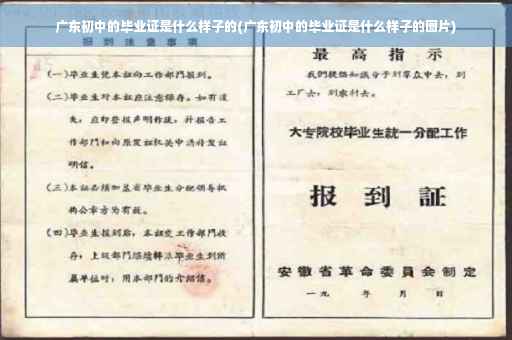 广东初中的毕业证是什么样子的(广东初中的毕业证是什么样子的图片)
报到注意事项
(一)毕业生凭本证向工作部门报到。
(二)毕业生对本证应注意保存。如有遗
失，应即登报声明作废，并报告工
作部门和向原发证机关申请补发证
明信。
(三)本证必须加盖省毕业生分配领导机
构公章方为有效。
(四)毕业生报到后，本证交工作部门收
存；上级部门继续转派毕业生到所
属单位时，用本部门的介绍信。
最高指示
我们提倡知识分子到群众中去，到
工厂去，到农村去。
大专院校毕业生统一分配工作
报到証
安徽省革命委員会制定
一九 年 月 日